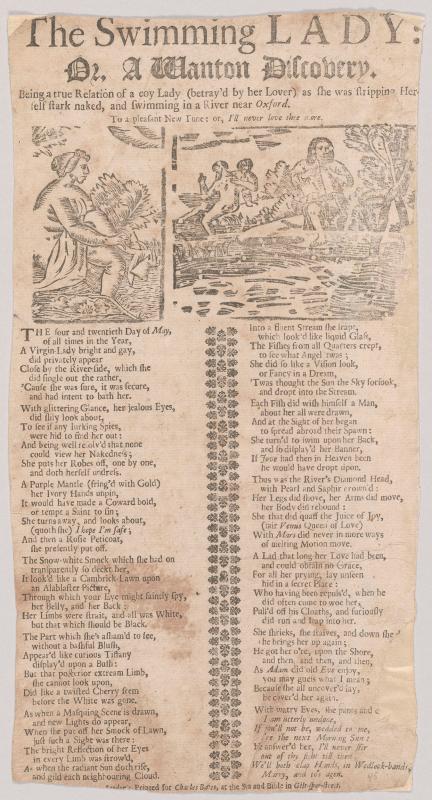 The Swimming LADY:
Or, A Wanton Discovery.
Being a true Relation of a coy Lady (betray'd by her Lover) as she was stripping Her-
self stark naked, and swimming in a River near Oxford.
To a pleasant New Tune: or, I'll never love thee more.
THE four and twentieth Day of May,
of all times in the Year,
A Virgin-Lady bright and gay,
did privately appear
Close by the River-side, which she
did single out the rather,
'Cause she was sure, it was secure,
and had intent to bath her.
With glittering Glance, her jealous Eyes,
did slily look about,
To see if any lurking Spies,
were hid to find her out:
And being well resolv'd that none
could view her Nakedness;
She puts her Robes off, one by one,
and doth herself undress.
A Purple Mantle (fring'd with Gold)
her Ivory Hands unpin,
It would have made a Coward bold,
or tempt a Saint to sin;
She turns away, and looks about,
(quoth she) I hope I'm safe;
And then a Rosie Peticoat,
she presently put off.
The Snow-white Smock which she had on
transparently so deckt her,
It look'd like a Cambrick Lawn upon
an Alablaster Picture,
Through which your Eye might faintly spy,
her Belly, and her Back:
Her Limbs were strait, and all was White,
but that which should be Black.
The Part which she's asham'd to see,
without a bashful Blush,
Appear'd like curious Tiffany
display'd upon a Bush:
But that posterior extream Limb,
she cannot look upon,
Did like a twisted Cherry seem
before the White was gone.
As when a Masquing Scene is drawn,
and new Lights do appear,
When she put off her Smock of Lawn,
just such a Sight was there:
The bright Reflection of her Eyes
in every Limb was strow'd,
As when the radiant Sun doth rise,
and gild each neighbouring Cloud.
Into a fluent Stream she leapt,
which look'd like liquid Glass,
The Fishes from all Quarters crept,
to see what Angel 'twas;
She did so like a Vision look,
or Fancy in a Dream,
'Twas thought the Sun the Sky forsook,
and dropt into the Stream.
Each Fish did wish himself a Man,
about her all were drawn,
And at the Sight of her began
to spread abroad their Spawn:
She turn'd to swim upon her Back,
and so display'd her Banner,
If Jove had then in Heaven been
he would have dropt upon.
Thus was the River's Diamond Head,
with Pearl and Saphir crown'd:
Her Legs did shove, her Arms did move,
her Body did rebound:
She that did quaff the Juice of Joy,
(fair Venus Queen of Love)
With Mars did never in more ways
of melting Motion move.
A Lad that long her Love had been,
and could obtain no Grace,
For all her prying, lay unseen
hid in a secret Place:
Who having been repuls'd, when he
did often come to woe her,
Pull'd off his Cloaths, and furiously
did run and leap into her.
She shrieks, she staives, and down she
he brings her up again;
He got her o're, upon the Shore,
and then, and then, and then,
As Adam did old Eve enjoy,
you may guess what I mean;
Because she all uncover'd lay,
he cover'd her again.
With watry Eyes, she pants and c
I am utterly undone,
If you'll not be, wedded to me,
e're the next Morning Sun:
He answer'd her, I'll never stir
out of thy sight till then
We'll both clap Hands, in Wedlock-bands,
Marry, and to't agen.
Printed for Charles Bates, at the Sun and Bible in